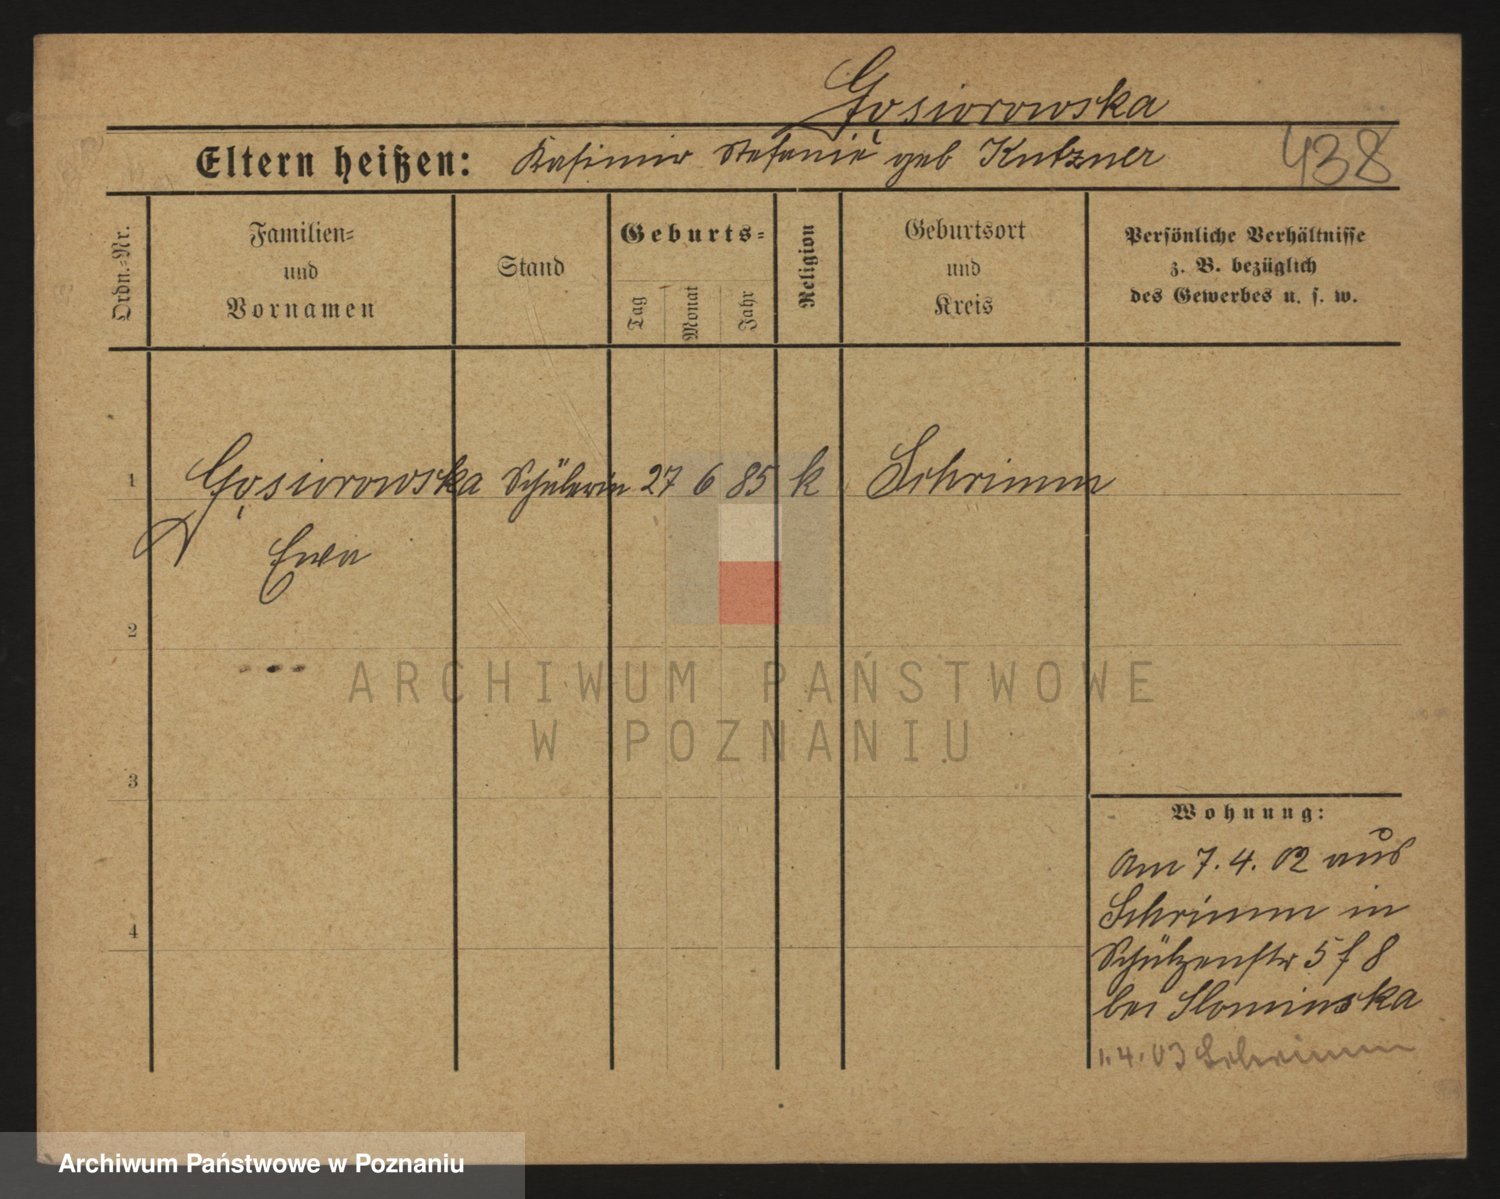 Gąsiorowska
Eltern heißen: Kasimir Stefanie geb Kutzner 438
Ordn.-Nr.
Familien-
und
Vornamen
Stand
Geburts-
Tag
Monat
Jahr
Religion
Geburtsort
und
Kreis
Persönliche Verhältnisse
z. B. bezüglich
des Gewerbes u. s. w.
1 Gąsiorowska Schülerin 27 6 85 k Schrimm
Ewa
2
3
4
Wohnung:
Am 7. 4. 02 aus
Schrimm in
Schützenstr 5 f 8
bei Slominska
1.4.03 Schrimm
ARCHIWUM PAŃSTWOWE
W POZNANIU
Archiwum Państwowe w Poznaniu